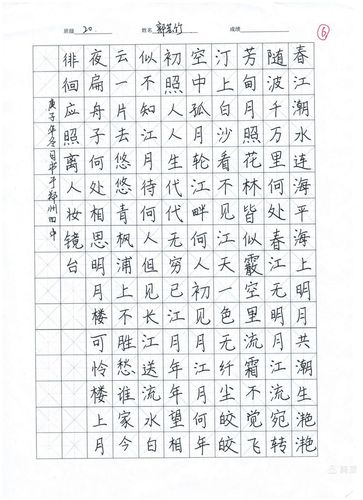 班级 20 姓名 成绩
6
春江潮水连海平海上明月共潮生滟滟
随波千万里何处春江无明月江流宛转
芳甸月照花林皆似霰空里流霜不觉飞
汀上白沙看不见江天一色无纤尘皎皎
空中孤月轮江畔何人初见月江月何年
初照人人生代代无穷已江月年年望相
似不知江月待何人但见长江送流水白
云一片去悠悠青枫浦上不胜愁谁家今
夜扁舟子何处相思明月楼可怜楼上月
徘徊应照离人妆镜台
庚子年冬月书于郑州四中